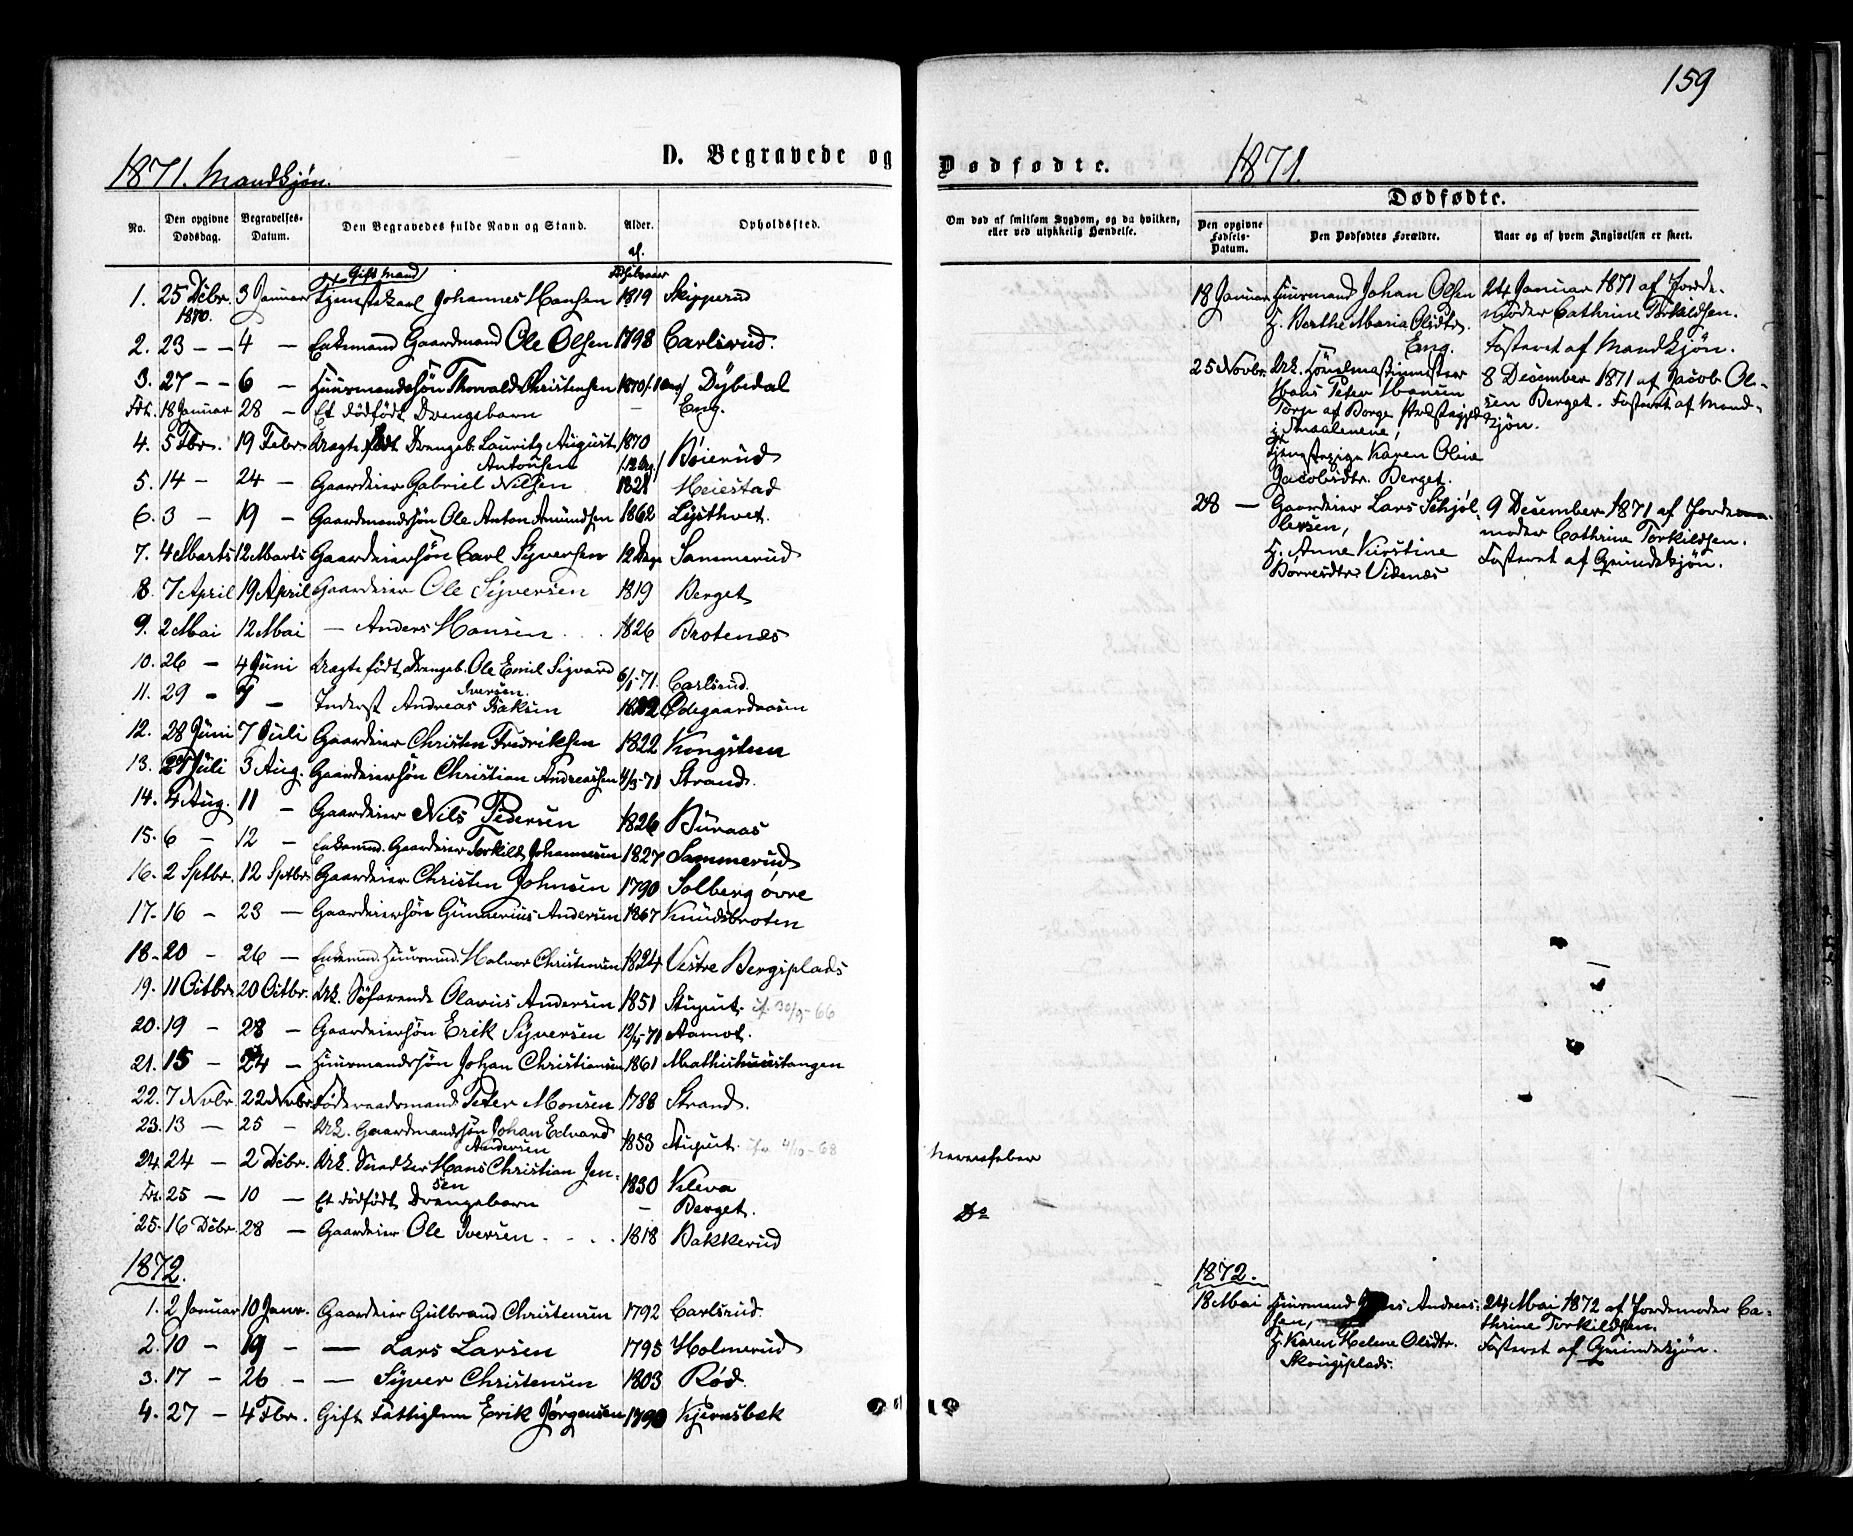 159
D. Begravede og Dødfødte.
1871. Mandkjøn.
1871.
No. Den opgivne Dødsdag. Begravelses-Datum. Den Begravedes fulde Navn og Stand. Alder. Opholdssted.
1. 25 Dcbr. 1870. 3 Januar Gift Mand Tjenstekarl Johannes Hansen 1819 Skipperud
2. 23 – – 4 – Enkemand Gaardmand Ole Olsen 1798 Carlsrud.
3. 27 – – 6 – Huusmandssøn Thorvald Christensen 1870 Dybedal
18 Januar 28 – Et dödfödt Drengebarn – Eng.
4. 5 Fbr. 19 Febr. Ægte födt Drengeb. Lauritz August 1870
Antonsen Böierud
5. 14 – 24 – Gaardeier Gabriel Nilsen 1821 Heiestad
6. 3 – 19 – Gaardmandssön Ole Anton Amundsen 1862 Lysthvet.
7. 4 Marts 12 Marts Gaardeiersön Carl Syversen 12 Dage Sammerud
8. 7 April 19 April Gaardeier Ole Syversen 1819 Berget
9. 2 Mai 12 Mai – Anders Hansen 1826 Brotenæs
10. 26 – 4 Juni Ægte födt Drengeb. Ole Emil Sigvard
Iversen. 6/1-71. Carlsrud.
11. 29 – – Inderst Andreas Isaksen Ödegaardaasen
12. 28 Juni 7 Juli Gaardeier Christen Fredriksen 1822 Kongsteen
13. Juli 3 Aug. Gaardeiersön Christian Andreassen Strand.
14. 4 Aug. 11 – Gaardeier Nils Pedersen 1826 Buraas
15. 6 – 12 – Enkemd. Gaardeier Torkild Johannesen 1827 Sammerud
16. 2 Sptbr. 12 Sptbr. Gaardeier Christen Johnsen 1790 Solberg övre
17. 16 – 23 – Gaardeiersön Gunnerius Andersen 1867 Knudsbroten
18. 20 – 26 – Enkemd. Huusmd. Halvor Christensen 1824 Vestre Bergsplads
19. 11 Octbr. 20 Octbr. Uk. Söfarende Olavus Andersen 1851 Stuput. 30/9-66
20. 19 – 28 – Gaardeiersön Erik Syversen Aamot.
21. 15 – 24 – Huusmandssön Johan Christiansen 1861 Mathishuustangen
22. 7 Nvbr. 22 Nvbr. Föderaadsmand Peter Monsen 1788 Strand.
23. 13 – 25 – Uk. Gaardmandssön Johan Edvard
Andersen 1853 Stuput. 4/10-68
24. 24 – 2 Dcbr. Uk. Snedker Hans Christian Jen-
sen 1830 Kleva
25 – 10 – Et dödfödt Drengebarn – Berget.
25. 16 Dcbr. 28 – Gaardeier Ole Iversen 1818 Bakkerud
1872.
1. 2 Januar 10 Janr. Gaardeier Gulbrand Christensen 1792 Carlsrud.
2. 10 – 19 – – Lars Larsen 1795 Holmerud
3. 17 – 26 – – Syver Christensen 1803 Röd.
4. 27 – 4 Fbr. Gift Fattiglem Erik Jörgensen Kjernsbæk
Om død af smitsom Sygdom, og da hvilken, eller ved ulykkelig Hændelse.
Nervefeber
Do
Dødfødte.
Den opgivne Fødsels-Datum. Den Dødfødtes Forældre. Naar og af hvem Angivelsen er skeet.
18 Januar Huusmand Johan Olsen
H. Berthe Maria Olsdtr.
Eng.
24 Januar 1871 af Jorde-
moder Cathrine Torkildsen.
Fosteret af Mandkjön.
25 Novbr. Uk.
Hans Peter Hansen
Torp af Borge Præstegjeld
i Smaalenene,
Karen Oline
Jacobsdtr. Berget.
8 December 1871 af Jacob Ol-
sen Berget. Fosteret af Mand-
kjön.
28 – Gaardeier Lars Schjöl-
lersen,
H. Anne Kirstine
Börresdtr. Videnæs
9 December 1871 af Jorde-
moder Cathrine Torkildsen.
Fosteret af Qvindekjön.
1872.
18 Mai Huusmand Andreas-
sen,
H. Karen Helene Olsdtr.
Skougsplads.
24 Mai 1872 af Jordemoder Ca-
thrine Torkildsen.
Fosteret af Qvindekjön.